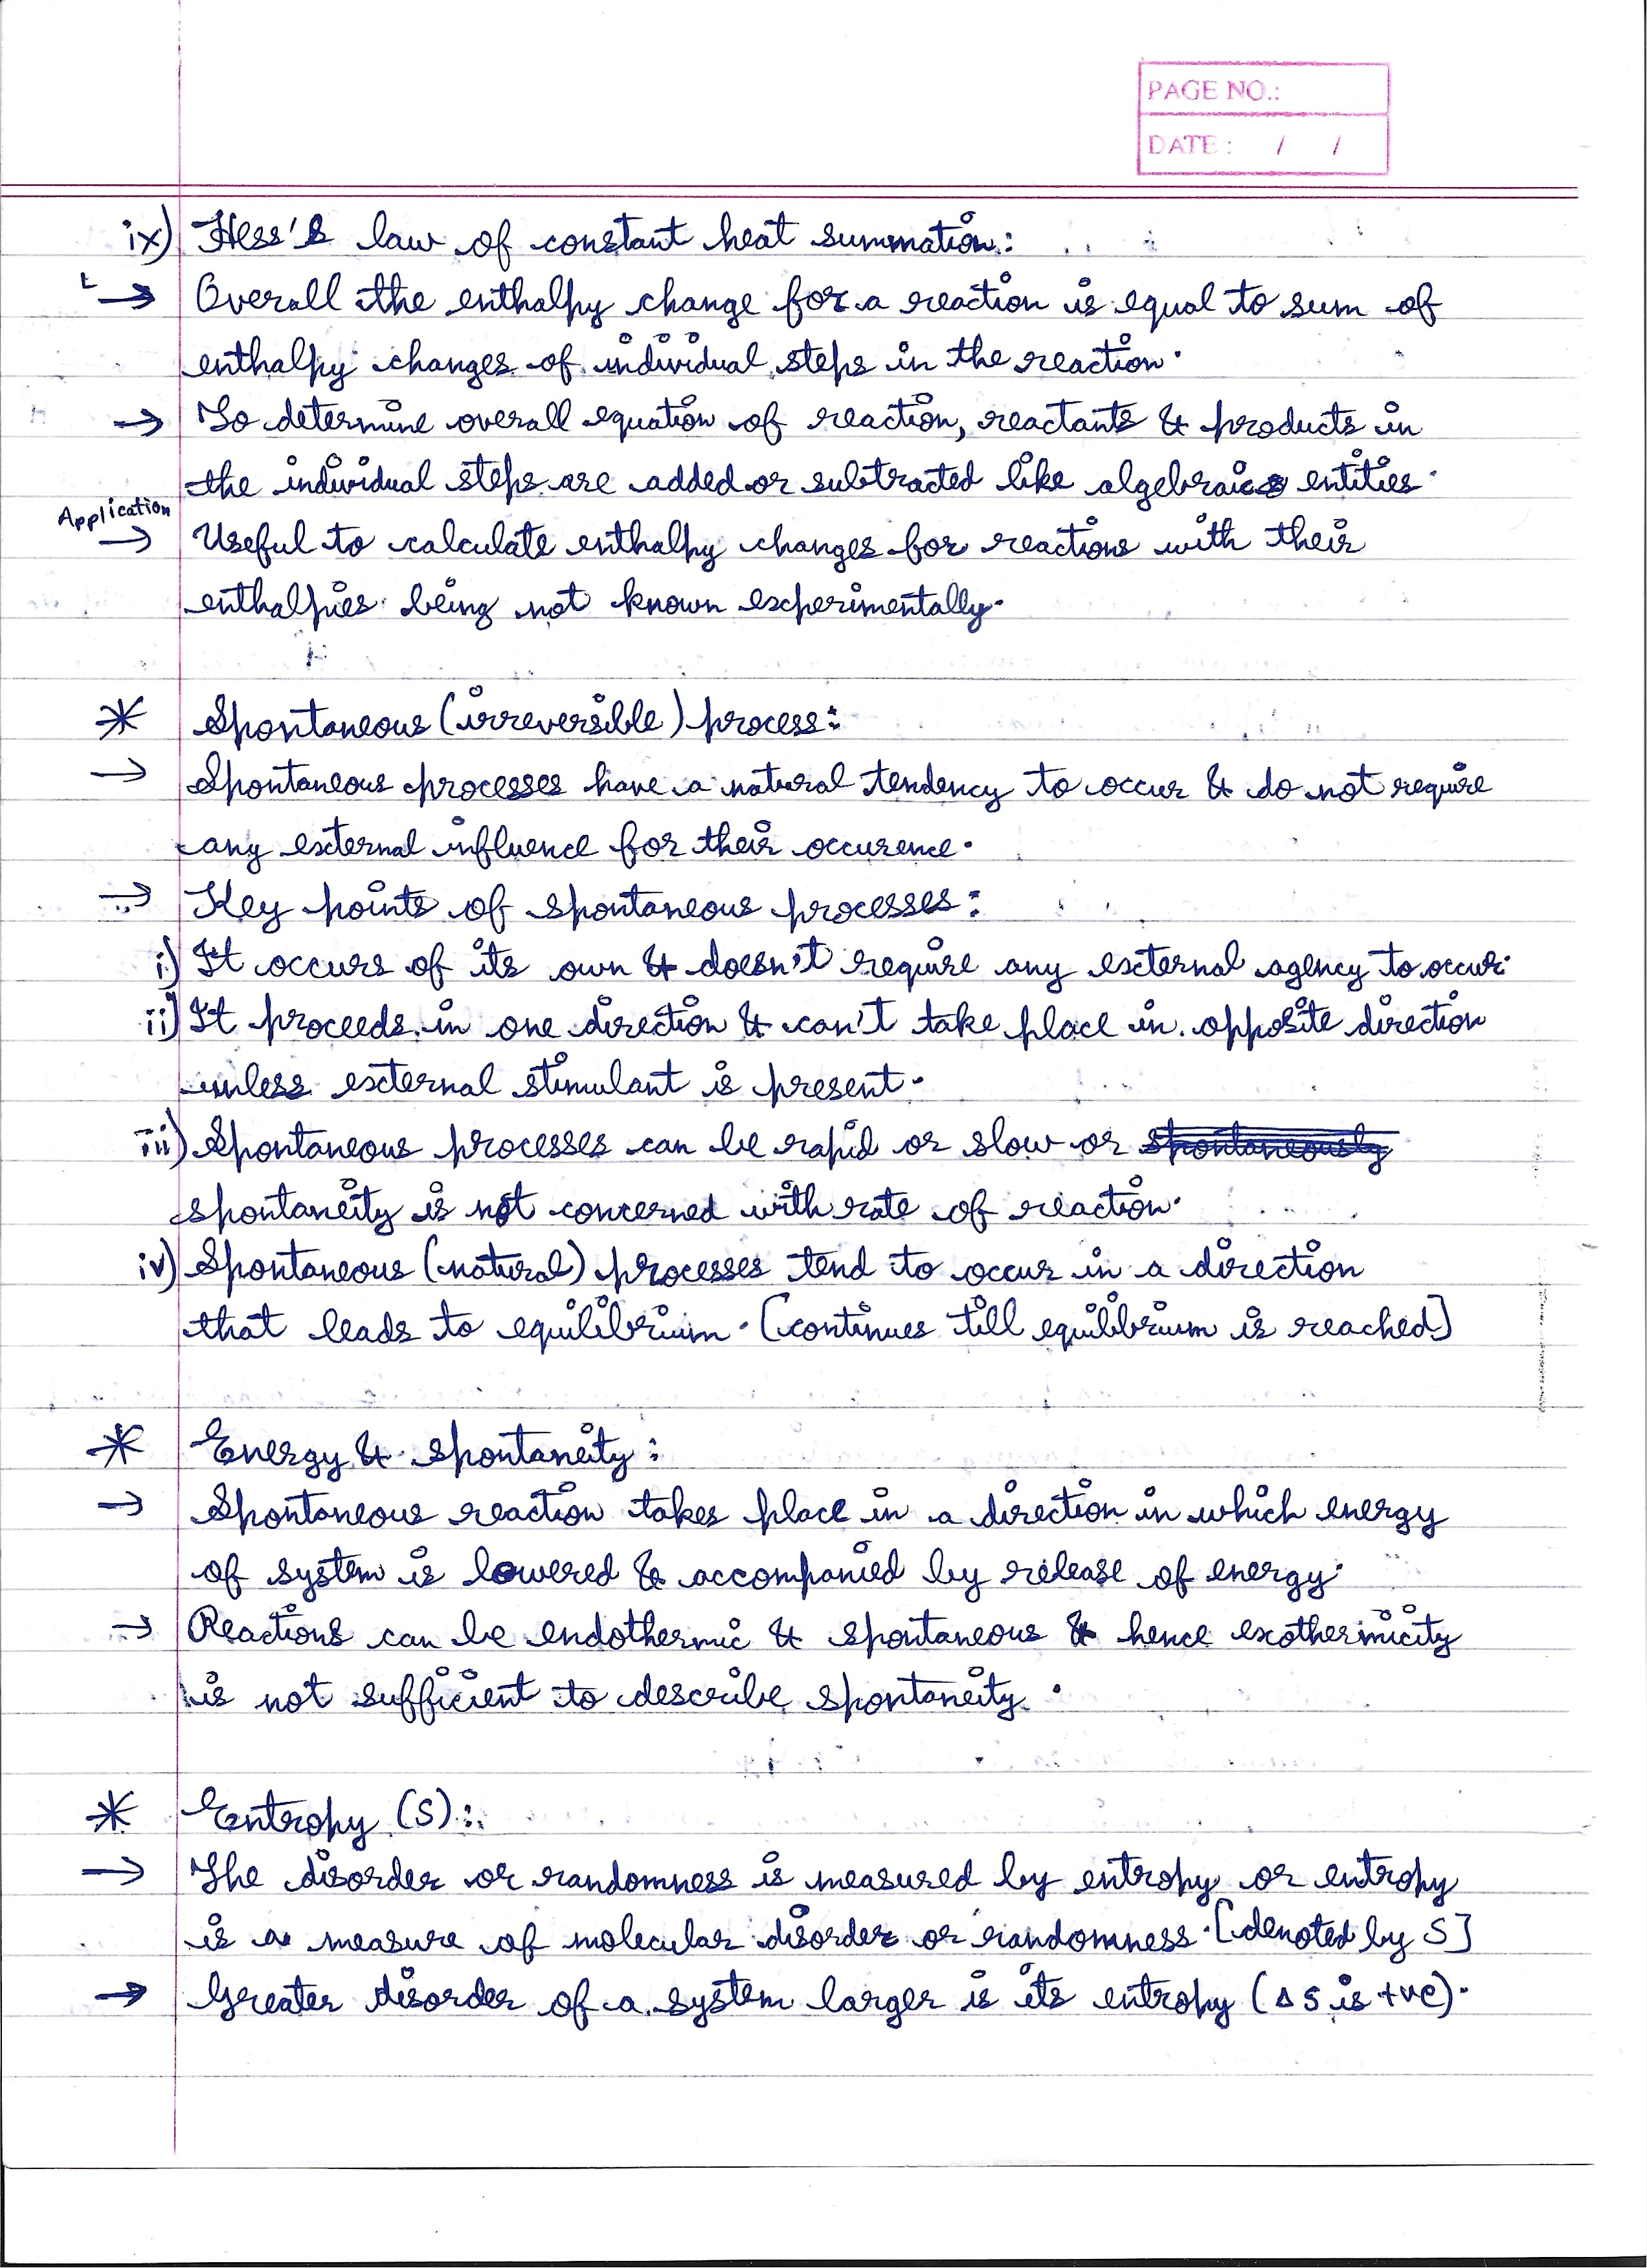 PAGE NO.:
DATE : / /
ix) Hess's law of constant heat summation:
→ Overall the enthalpy change for a reaction is equal to sum of
enthalpy changes of individual steps in the reaction.
→ To determine overall equation of reaction, reactants & products in
the individual steps are added or subtracted like algebraic entities.
Application
→ Useful to calculate enthalpy changes for reactions with their
enthalpies being not known experimentally.
* Spontaneous (irreversible) process:
→ Spontaneous processes have a natural tendency to occur & do not require
any external influence for their occurence.
→ Key points of spontaneous processes:
i) It occurs of its own & doesn't require any external agency to occur.
ii) It proceeds in one direction & can't take place in opposite direction
unless external stimulant is present.
iii) Spontaneous processes can be rapid or slow or spontaneously
spontaneity is not concerned with rate of reaction.
iv) Spontaneous (natural) processes tend to occur in a direction
that leads to equilibrium. [continues till equilibrium is reached]
* Energy & spontaneity:
→ Spontaneous reaction takes place in a direction in which energy
of system is lowered & accompanied by release of energy.
→ Reactions can be endothermic & spontaneous & hence exothermicity
is not sufficient to describe spontaneity.
* Entropy (S):
→ The disorder or randomness is measured by entropy or entropy
is a measure of molecular disorder or randomness. [denoted by S]
→ Greater disorder of a system larger is its entropy (ΔS is +ve).